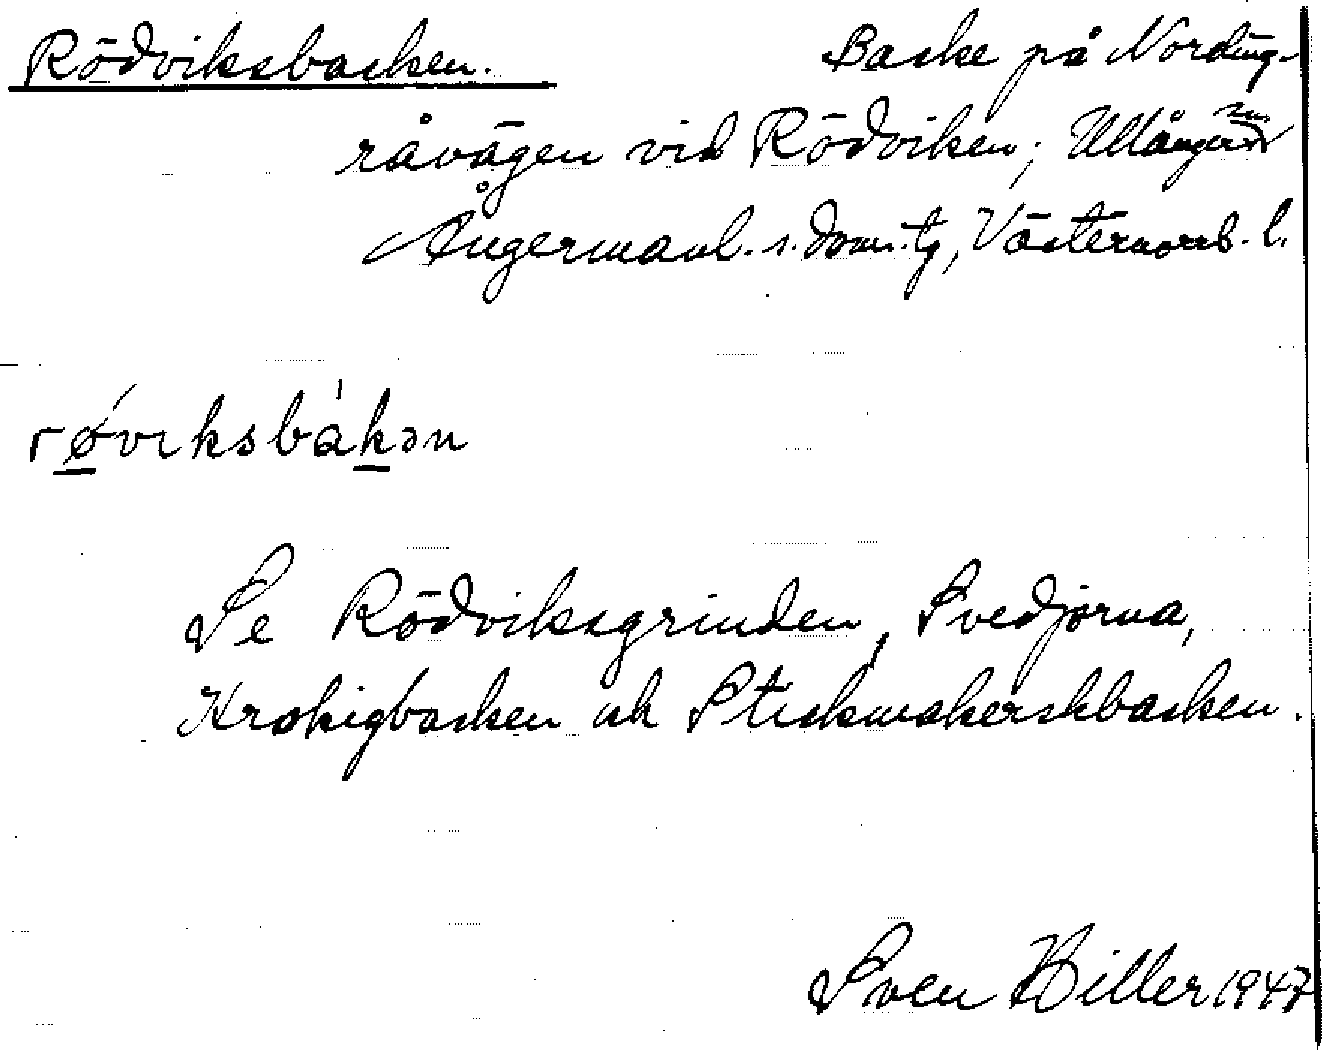 Rödviksbacken. Backe på Nording-
råvägen vid Rödviken, Ullånger sn
Ångermanl. s. doms. tg, Västernorrl. l.
røviksbàkən
Se Rödviksgrinden, Svedjorna,
Krokigbacken och Stickmakerskbacken.
Sven Hiller 1947